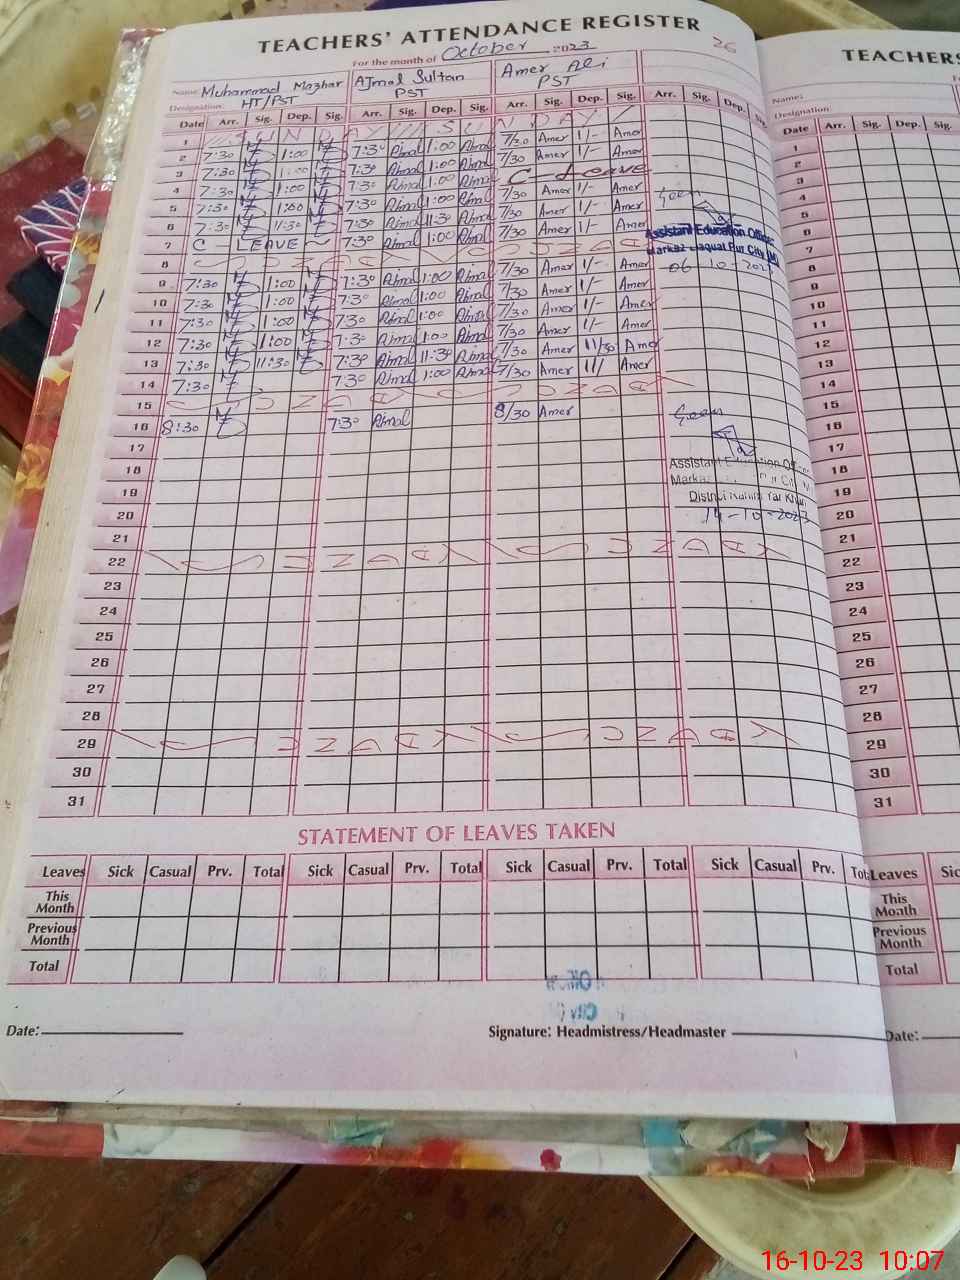 TEACHERS' ATTENDANCE REGISTER
26
For the month of October 2023
Name: Muhammad Mazhar AJmal Sultan Amer Ali
Designation: HT/PST PST PST
Date Arr. Sig. Dep. Sig. Arr. Sig. Dep. Sig. Arr. Sig. Dep. Sig. Arr. Sig. Dep. Sig.
1 SUNDAY SUNDAY
2 7:30 1:00 7:30 Ajmal 1:00 Ajmal 7/30 Amer 1/- Amer
3 7:30 1:00 7:30 Ajmal 1:00 Ajmal 7/30 Amer 1/- Amer
4 7:30 1:00 7:30 Ajmal 1:00 Ajmal C-Leave
5 7:30 1:00 7:30 Ajmal 1:00 Ajmal 7/30 Amer 1/- Amer
6 7:30 11:30 7:30 Ajmal 11:30 Ajmal 7/30 Amer 1/- Amer
7 C - LEAVE 7:30 Ajmal 1:00 Ajmal 7/30 Amer 1/- Amer
Seen
Assistant Education Officer
Markaz Liaquat Pur City (M)
06 10-2023
8 SUNDAY SUNDAY
9 7:30 1:00 7:30 Ajmal 1:00 Ajmal 7/30 Amer 1/- Amer
10 7:30 1:00 7:30 Ajmal 1:00 Ajmal 7/30 Amer 1/- Amer
11 7:30 1:00 7:30 Ajmal 1:00 Ajmal 7/30 Amer 1/- Amer
12 7:30 1:00 7:30 Ajmal 1:00 Ajmal 7/30 Amer 1/- Amer
13 7:30 11:30 7:30 Ajmal 11:30 Ajmal 7/30 Amer 11/30 Amer
14 7:30 7:30 Ajmal 1:00 Ajmal 7/30 Amer 1/ Amer
15 SUNDAY SUNDAY
16 8:30 7:30 Ajmal 8/30 Amer
Seen
17
18
Assistant Education
Markaz City
19
District Rahim Yar Khan
20
14-10-2023
21
22 SUNDAY SUNDAY
23
24
25
26
27
28
29 SUNDAY SUNDAY
30
31
STATEMENT OF LEAVES TAKEN
Leaves Sick Casual Prv. Total Sick Casual Prv. Total Sick Casual Prv. Total Sick Casual Prv. Tot
This Month
Previous Month
Total
Date:
Signature: Headmistress/Headmaster
TEACHERS
Name:
Designation
Date Arr. Sig. Dep. Sig.
1
2
3
4
5
6
7
8
9
10
11
12
13
14
15
16
17
18
19
20
21
22
23
24
25
26
27
28
29
30
31
Leaves Sic
This Month
Previous Month
Total
Date:
16-10-23 10:07